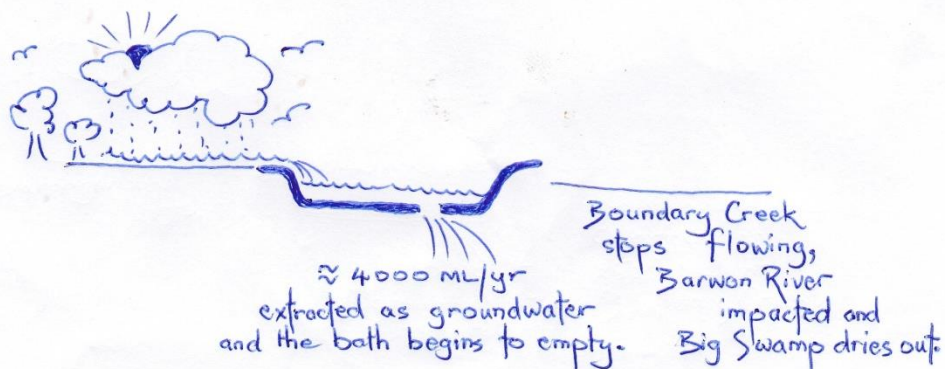 ≈ 4000 ML/yr
extracted as groundwater
and the bath begins to empty.
Boundary Creek
stops flowing,
Barwon River
impacted and
Big Swamp dries out.